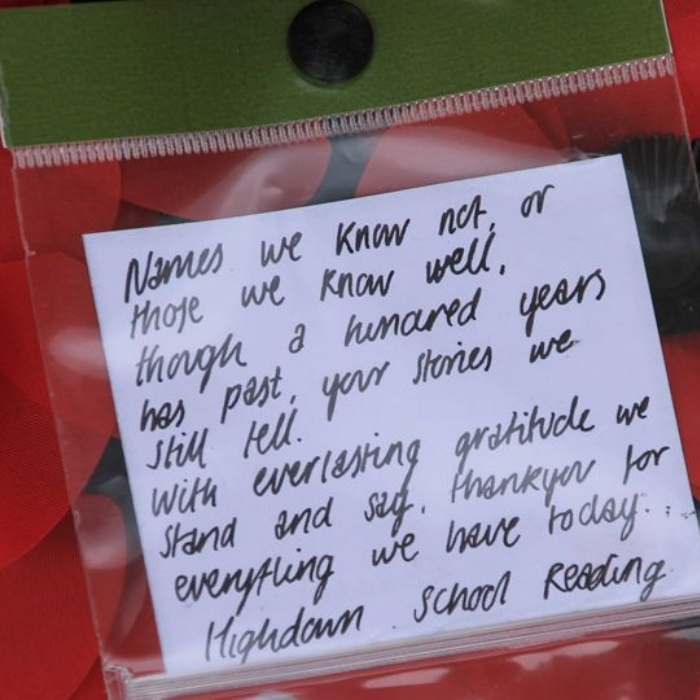 Names we know not, or
those we know well,
though a hundred years
has past, your stories we
still tell.
With everlasting gratitude we
stand and say, thankyou for
everything we have today.
Highdown School Reading